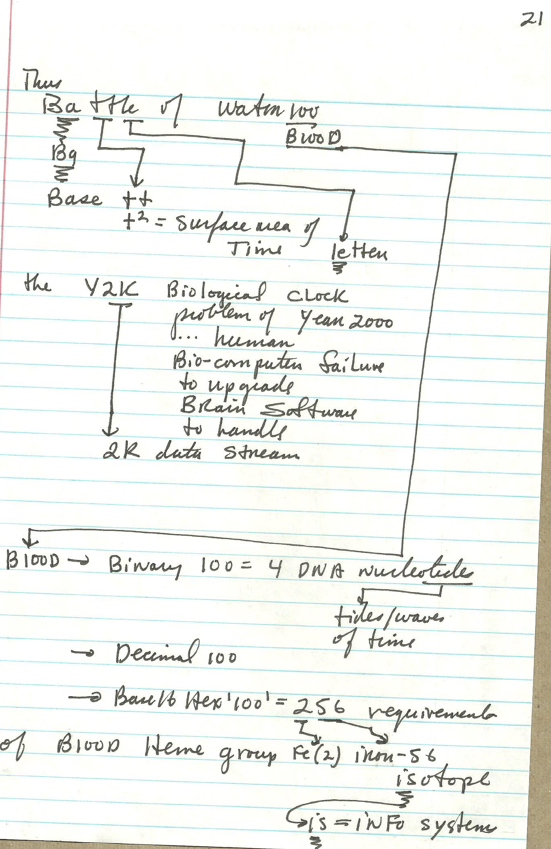 21
Thus
Battle of Water100
B100D
Bq
Base tt
t² = Surface area of
Time
letter
the Y2K Biological Clock
problem of Year 2000
... human
Bio-computer failure
to upgrade
Brain Software
to handle
2K data stream
B100D → Binary 100 = 4 DNA nucleotides
tides/waves
of time
→ Decimal 100
→ Base16 Hex '100' = 256 requirements
of B100D Heme group Fe(2) iron-56
isotope
is = iNFo systems